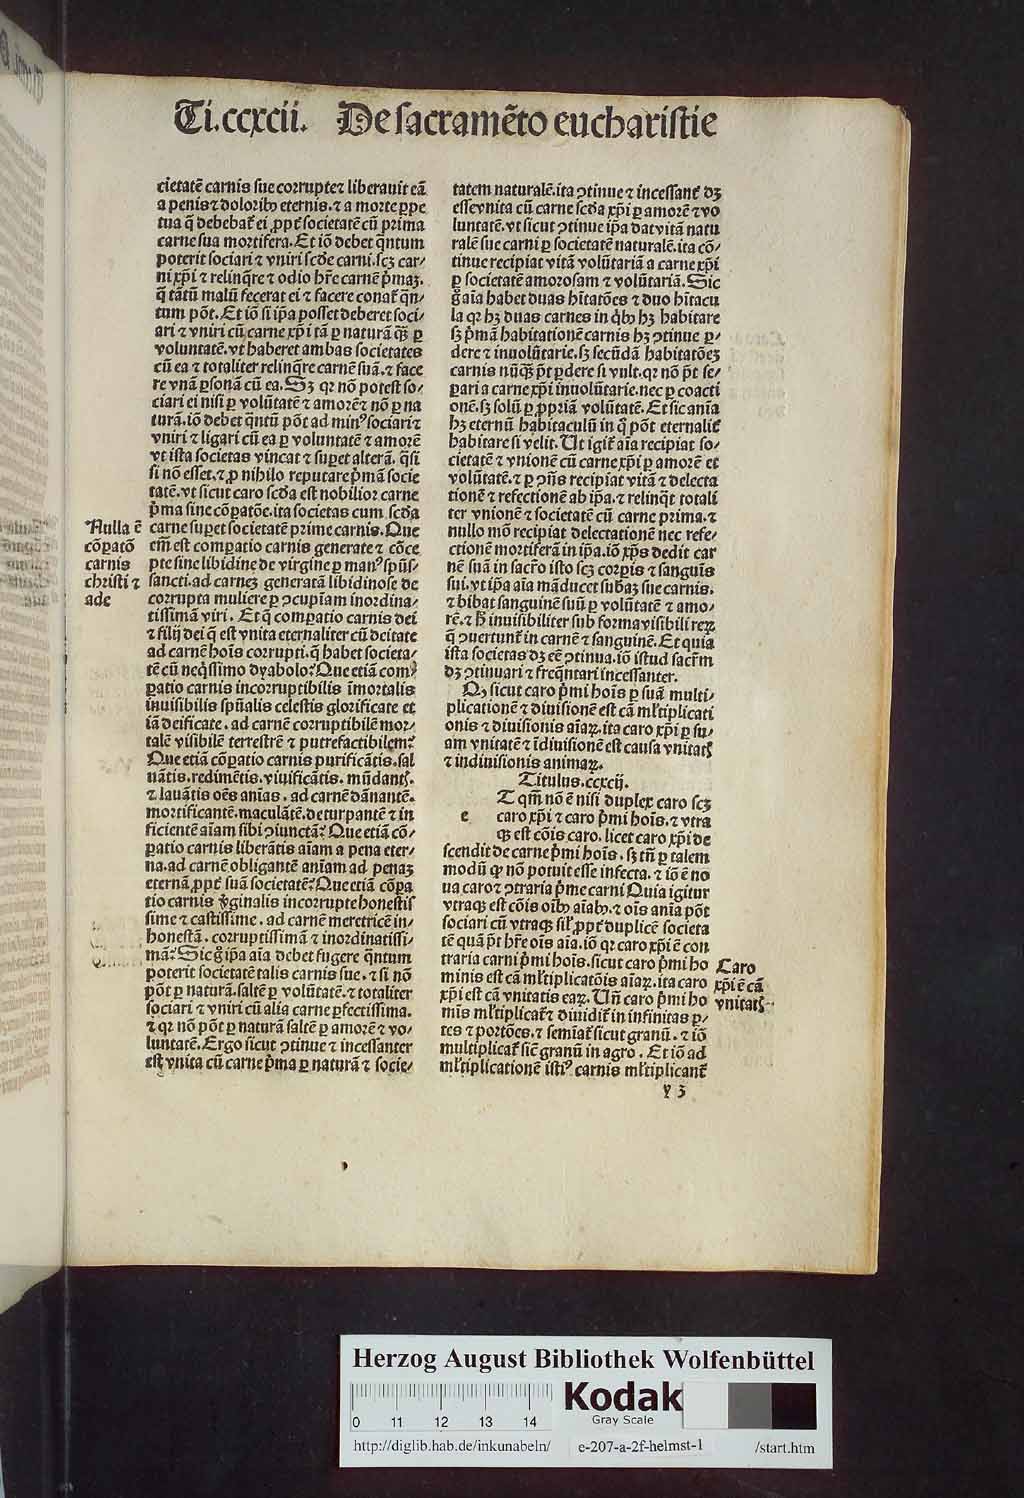 Ti.ccxcii. De sacramēto eucharistie
cietatē carnis sue corrupteꝫ liberauit eā
a penis ⁊ doloribꝰ eternis.⁊ a morte ꝑpe
tua q̄ debebat̄ ei ꝓpt̄ societatē cū prima
carne sua mortifera. Et iō debet q̄ntum
poterit sociari ⁊ vniri scd̄e carni.scꝫ car/
ni xp̄i ⁊ relinq̄re ⁊ odio hr̄e carnē p̄maꝫ.
q̄ tātū malū fecerat ei ⁊ facere conat̄ q̄n/
tum pōt. Et iō si ip̄a posset deberet soci/
ari ⁊ vniri cū carne xp̄i tā ꝑ naturā qꝫ̄ ꝑ
voluntatē.vt haberet ambas societates
cū ea ⁊ totaliter relinq̄re carnē suā.⁊ face
re vnā ꝑsonā cū ea. Sꝫ qꝛ nō potest so/
ciari ei nisi ꝑ volūtatē ⁊ amorē ⁊ nō ꝑ na
turā.iō debet q̄ntū pōt ad minꝰ sociari ⁊
vniri ⁊ ligari cū ea ꝑ voluntatē ⁊ amorē
vt ista societas vincat ⁊ suꝑet alterā. q̄si
si nō esset.⁊ ꝓ nihilo reputare p̄mā socie
tatē.vt sicut caro scd̄a est nobilior carne
p̄ma sine cōꝑatōe.ita societas cum scd̄a
carne suꝑet societatē prime carnis. Que
em̄ est comꝑatio carnis generate ⁊ cōce
pte sine libidine de virgine ꝑ manꝰ sp̄us/
sancti.ad carneꝫ generatā libidinose de
corrupta muliere ꝑ ɔcupīam inordina/
tissimā viri. Et q̄ comꝑatio carnis dei
⁊ filij dei q̄ est vnita eternaliter cū dcitate
ad carnē hoīs corrupti.q̄ habet societa/
tē cū neq̄ssimo dyabolo? Que etiā com
ꝑatio carnis incorruptibilis īmortalis
inuisibilis sp̄ualis celestis glorificate et
iā deificate. ad carnē corruptibilē mor/
talē visibilē terrestrē ⁊ putrefactibilem?
Que etiā cōꝑatio carnis purificātis.sal
uātis.redimētis.viuificātis. mūdant̄.
⁊ lauātis oēs anīas. ad carnē dānantē.
mortificantē.maculātē.deturpantē ⁊ in
ficientē aīam sibi ɔiunctā? Que etiā cō/
ꝑatio carnis liberātis aīam a pena eter/
na.ad carnē obligantē anīam ad penaꝫ
eternā ꝓpt̄ suā societatē? Que etiā cōꝑa
tio carnis v̄ginalis incorrupte honestis
sime ⁊ castissime. ad carnē meretricē in/
honestā. corruptissimā ⁊ inordinatissi/
mā? Sic g̊ ip̄a aīa debet fugere q̄ntum
poterit societatē talis carnis sue.⁊ si nō
pōt ꝑ naturā.saltē ꝑ volūtatē.⁊ totaliter
sociari ⁊ vniri cū alia carne ꝑfectissima.
⁊ qꝛ nō pōt ꝑ naturā saltē ꝑ amorē ⁊ vo/
luntatē. Ergo sicut ɔtinue ⁊ incessanter
est vnita cū carne p̄ma ꝑ naturā ⁊ socie/
Nulla ē
cōꝑatō
carnis
christi ⁊
ade
tatem naturalē.ita ɔtinue ⁊ incessant̄ dꝫ
esse vnita cū carne scd̄a xp̄i ꝑ amorē ⁊ vo
luntatē.vt sicut ɔtinue ip̄a dat vitā natu
ralē sue carni ꝑ societatē naturalē.ita cō/
tinue recipiat vitā volūtariā a carne xp̄i
ꝑ societatē amorosam ⁊ volūtariā. Sic
g̊ aīa habet duas hītatōes ⁊ duo hītacu
la qꝛ hꝫ duas carnes in qͥbꝰ hꝫ habitare
sꝫ p̄mā habitationē carnis hꝫ ɔtinue ꝑ/
dere ⁊ inuolūtarie.sꝫ secūdā habitatōeꝫ
carnis nūqꝫ̄ pt̄ ꝑdere si vult.qꝛ nō pt̄ se/
ꝑari a carne xp̄i inuolūtarie.nec ꝑ coacti
onē.sꝫ solū ꝑ ꝓpriā volūtatē. Et sic anīa
hꝫ eternū habitaculū in q̄ pōt eternalit̄
habitare si velit. Ut igit̄ aīa recipiat so/
cietatē ⁊ vnionē cū carne xp̄i ꝑ amorē et
volūtatē.⁊ ꝑ ɔn̄s recipiat vitā ⁊ delecta
tionē ⁊ refectionē ab ip̄a.⁊ relinq̄t totali
ter vnionē ⁊ societatē cū carne prima.⁊
nullo mō recipiat delectationē nec refe/
ctionē mortiferā in ip̄a.iō xp̄s dedit car
nē suā in sacr̄o isto scꝫ corꝑis ⁊ sanguīs
sui.vt ip̄a aīa māducet sub̄aꝫ sue carnis.
⁊ bibat sanguinē suū ꝑ volūtatē ⁊ amo/
rē.⁊ ħ inuisibiliter sub forma visibili reꝝ
q̄ ɔuertunt̄ in carnē ⁊ sanguinē. Et quia
ista societas dꝫ eē ɔtinua.iō istud sacr̄m
dꝫ ɔtinuari ⁊ freq̄ntari incessanter.
Qꝫ sicut caro p̄mi hoīs ꝑ suā multi/
plicationē ⁊ diuisionē est cā ml̄tiplicati
onis ⁊ diuisionis aīaꝝ.ita caro xp̄i ꝑ su/
am vnitatē ⁊ īdiuisionē est causa vnitat̄
⁊ indiuisionis animaꝝ.
Titulus.ccxcij.
e
T qm̄ nō ē nisi duplex caro scꝫ
caro xp̄i ⁊ caro p̄mi hoīs.⁊ vtra
qꝫ est cōis caro. licet caro xp̄i de
scendit de carne p̄mi hoīs. sꝫ tn̄ ꝑ talem
modū ꝙ nō potuit esse infecta.⁊ iō ē no
ua caro ⁊ ɔtraria p̄me carni Quia igitur
vtraqꝫ est cōis oībꝰ aīabꝰ.⁊ oīs anīa pōt
sociari cū vtraqꝫ sil̄.ꝓpt̄ duplicē societa
tē quā pt̄ hr̄e oīs aīa.iō qꝛ caro xp̄i ē con
traria carni p̄mi hoīs.sicut caro p̄mi ho
minis est cā ml̄tiplicatōis aīaꝝ.ita caro
xp̄i est cā vnitatis eaꝝ. Un̄ caro p̄mi ho
mis ml̄tiplicat̄ ⁊ diuidit̄ in infinitas ꝑ/
tes ⁊ portōes.⁊ semīat̄ sicut granū. ⁊ iō
multiplicat̄ sic̄ granū in agro. Et iō ad
ml̄tiplicationē istiꝰ carnis ml̄tiplicant̄
Caro
xp̄i ē cā
vnitat̄
y 3
Herzog August Bibliothek Wolfenbüttel
0 11 12 13 14
Kodak
Gray Scale
http://diglib.hab.de/inkunabeln/ e-207-a-2f-helmst-1 /start.htm